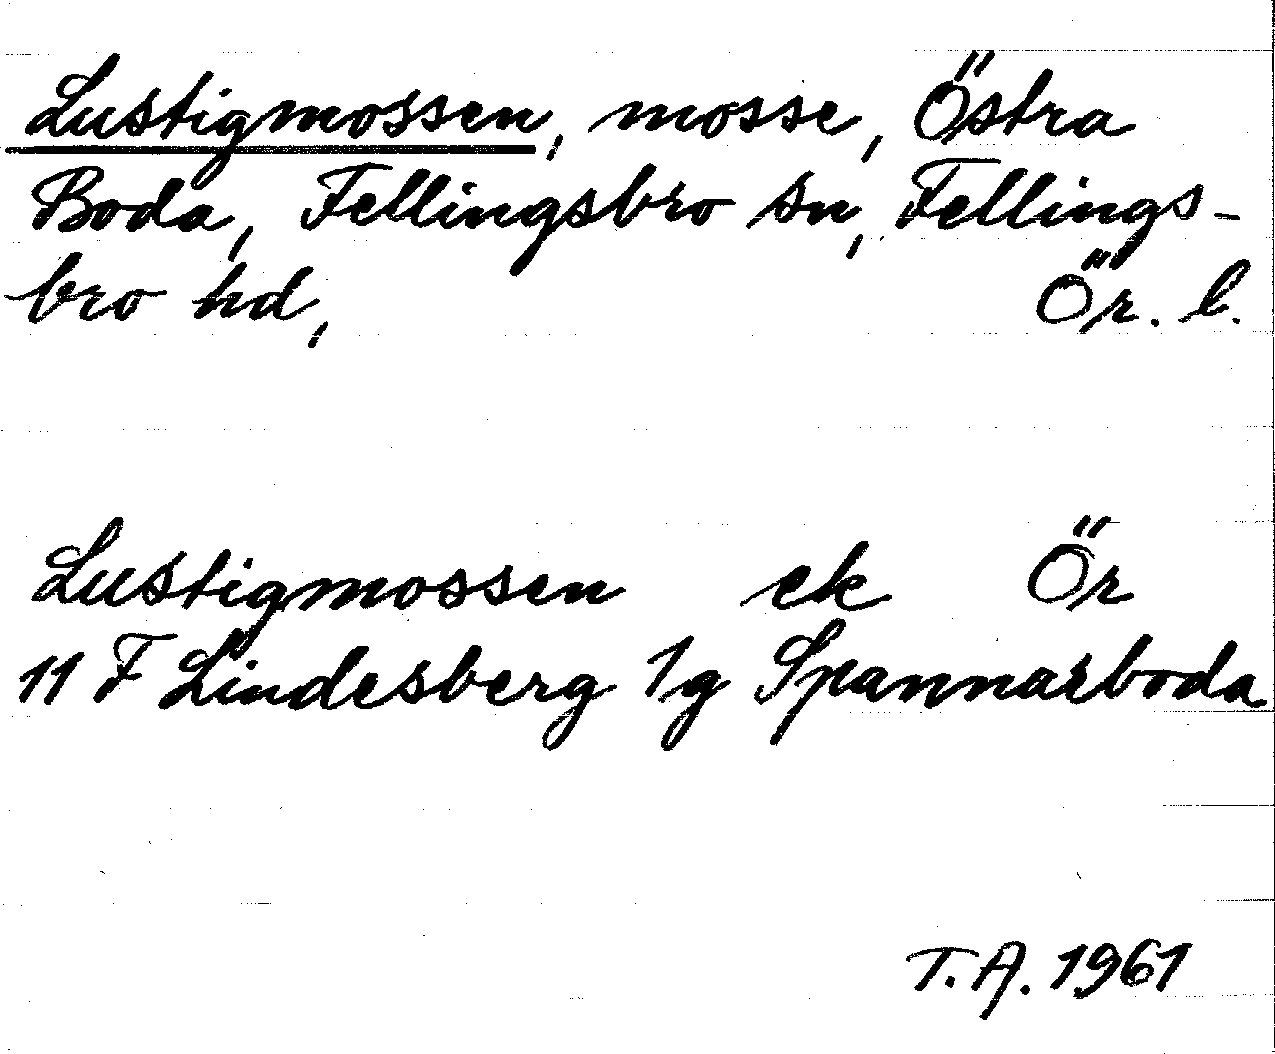 Lustigmossen, mosse, Östra
Boda, Fellingsbro sn, Fellings-
bro hd, Ör. l.
Lustigmossen ek Ör
11 F Lindesberg 1g Spannarboda
T. A. 1961